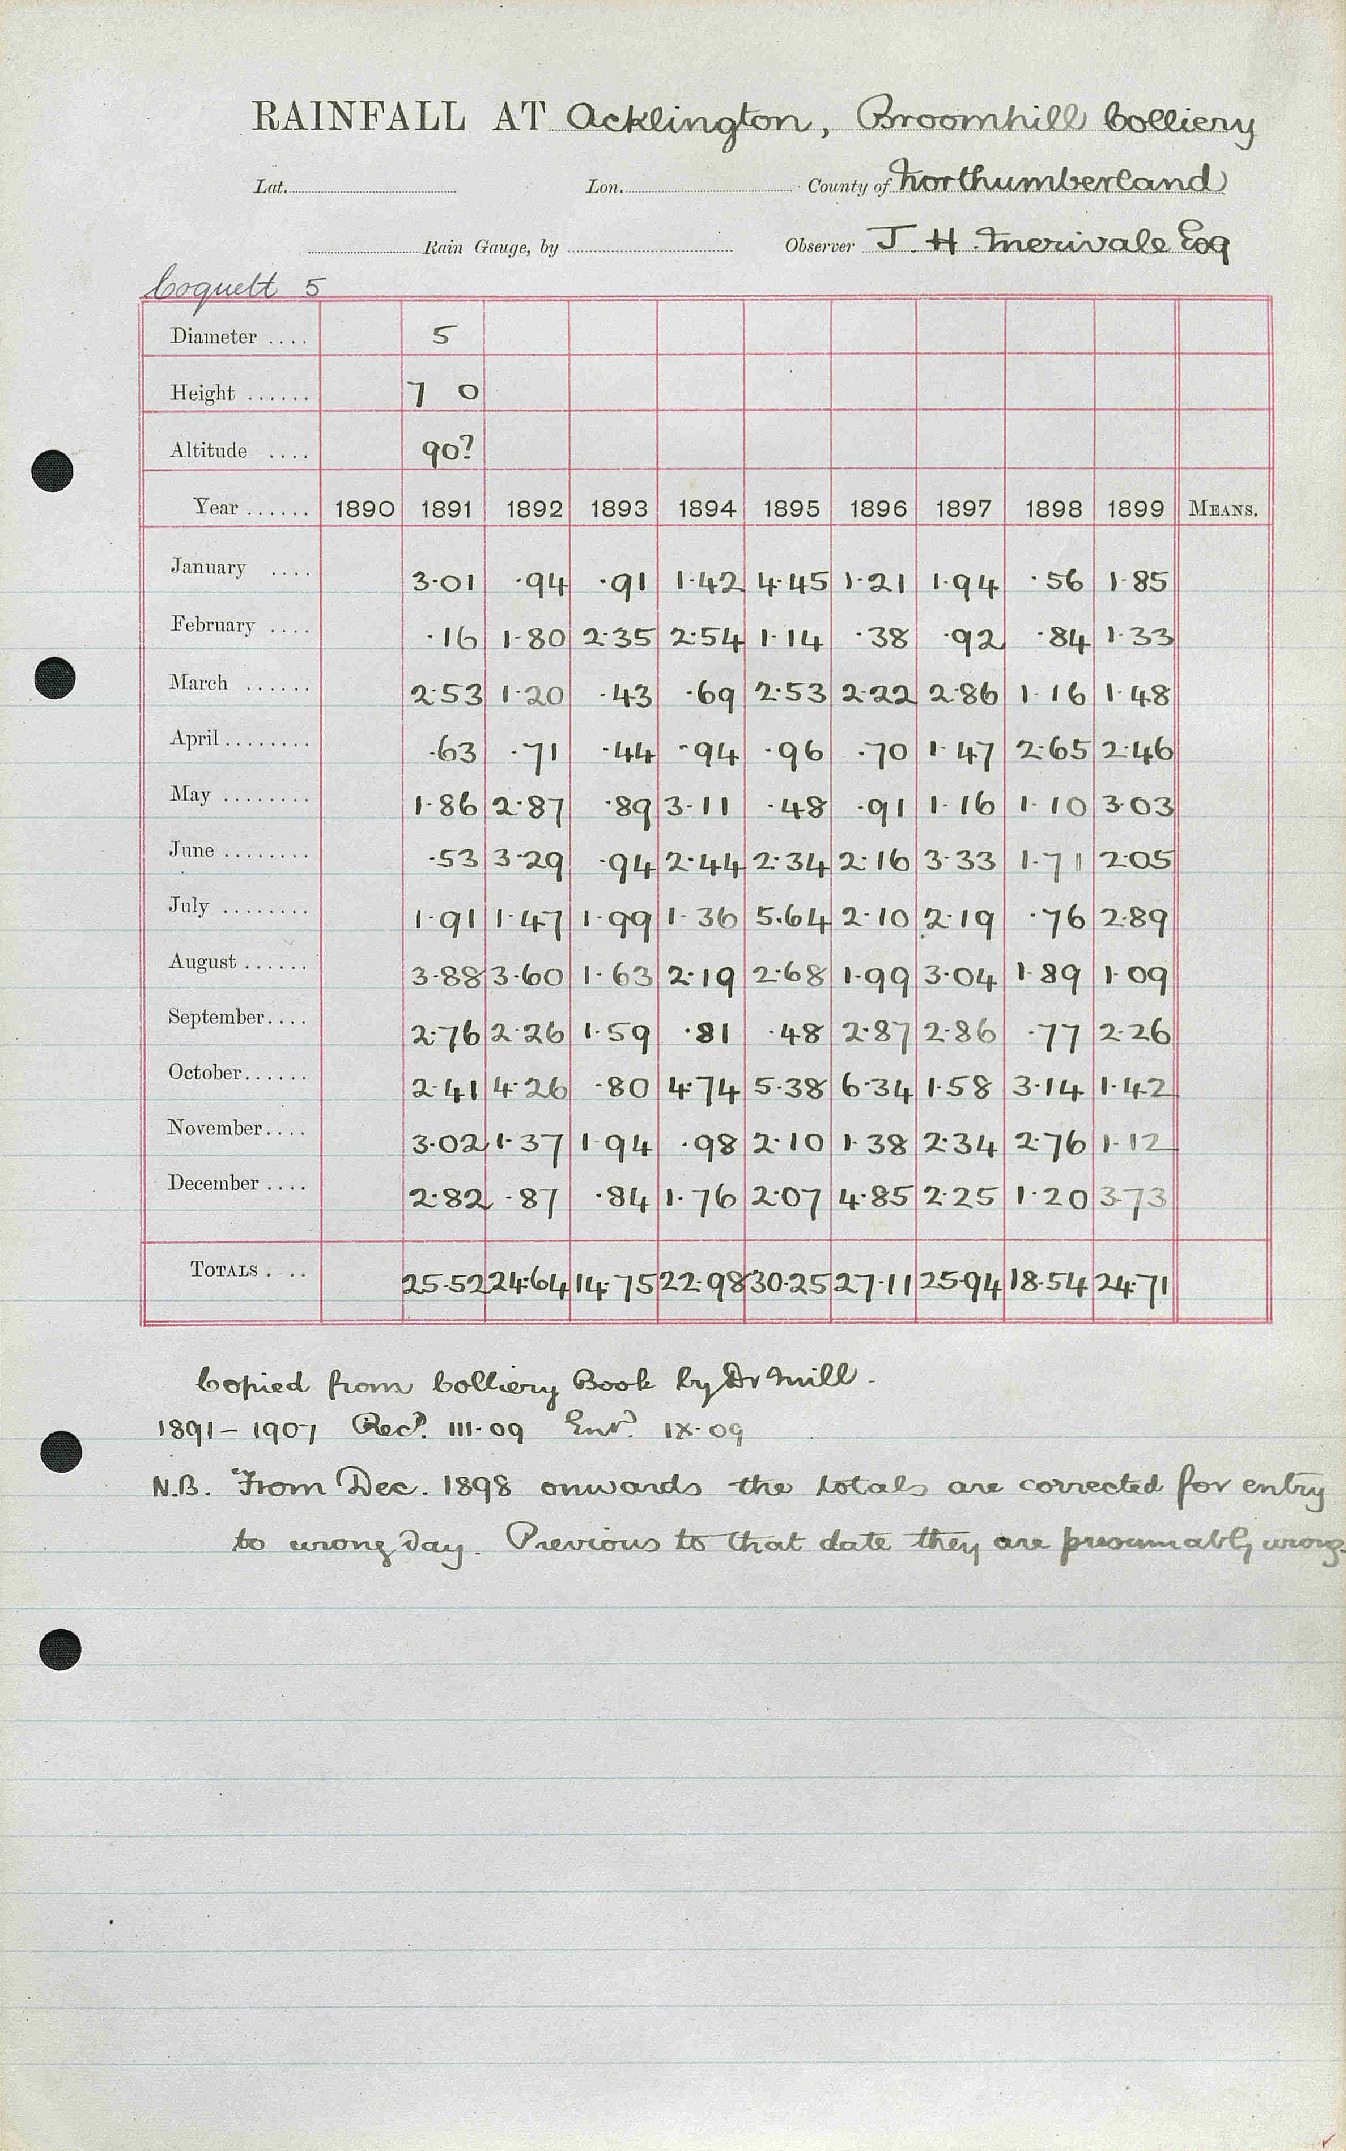 RAINFALL AT Acklington, Broomhill Colliery
Lat. Lon. County of Northumberland
Rain Gauge, by Observer J. H. Merivale Esq
Coquett 5
Diameter .... 5
Height ...... 7 0
Altitude .... 90?
Year ...... 1890 1891 1892 1893 1894 1895 1896 1897 1898 1899 MEANS.
January .... 3.01 .94 .91 1.42 4.45 1.21 1.94 .56 1.85
February .... .16 1.80 2.35 2.54 1.14 .38 .92 .84 1.33
March ...... 2.53 1.20 .43 .69 2.53 2.22 2.86 1.16 1.48
April ........ .63 .71 .44 .94 .96 .70 1.47 2.65 2.46
May ........ 1.86 2.87 .89 3.11 .48 .91 1.16 1.10 3.03
June ........ .53 3.29 .94 2.44 2.34 2.16 3.33 1.71 2.05
July ........ 1.91 1.47 1.99 1.36 5.64 2.10 2.19 .76 2.89
August ...... 3.88 3.60 1.63 2.19 2.68 1.99 3.04 1.89 1.09
September .... 2.76 2.26 1.59 .81 .48 2.87 2.86 .77 2.26
October ...... 2.41 4.26 .80 4.74 5.38 6.34 1.58 3.14 1.42
November .... 3.02 1.37 1.94 .98 2.10 1.38 2.34 2.76 1.12
December .... 2.82 .87 .84 1.76 2.07 4.85 2.25 1.20 3.73
TOTALS .... 25.52 24.64 14.75 22.98 30.25 27.11 25.94 18.54 24.71
Copied from Colliery Book by Dr Mill.
1891 - 1907 Recd. III.09 Entd. IX.09
N.B. From Dec. 1898 onwards the totals are corrected for entry
to wrong day. Previous to that date they are presumably wrong.